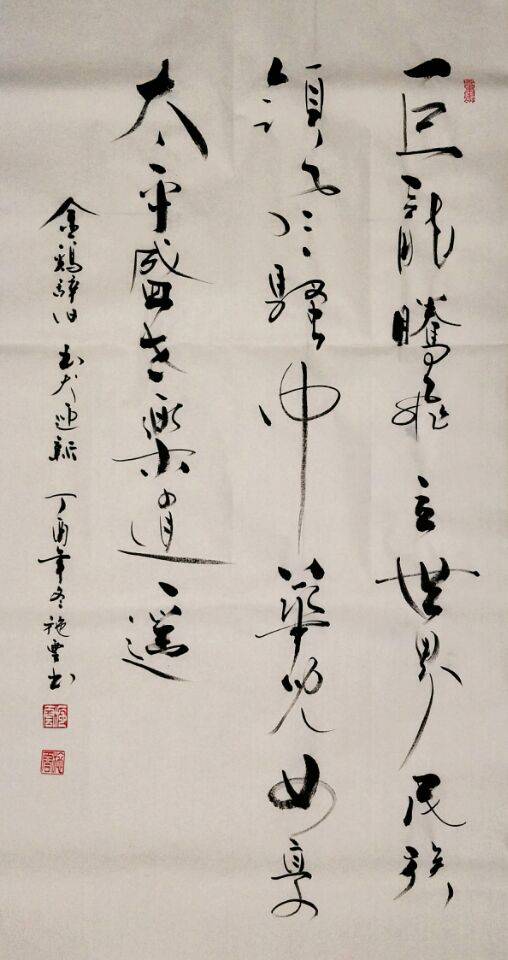 巨龍騰飛立世界民族
領風騷中華兒女享
太平盛世樂逍遥
金鷄辭旧 玉犬迎新 丁酉年冬 施雲书